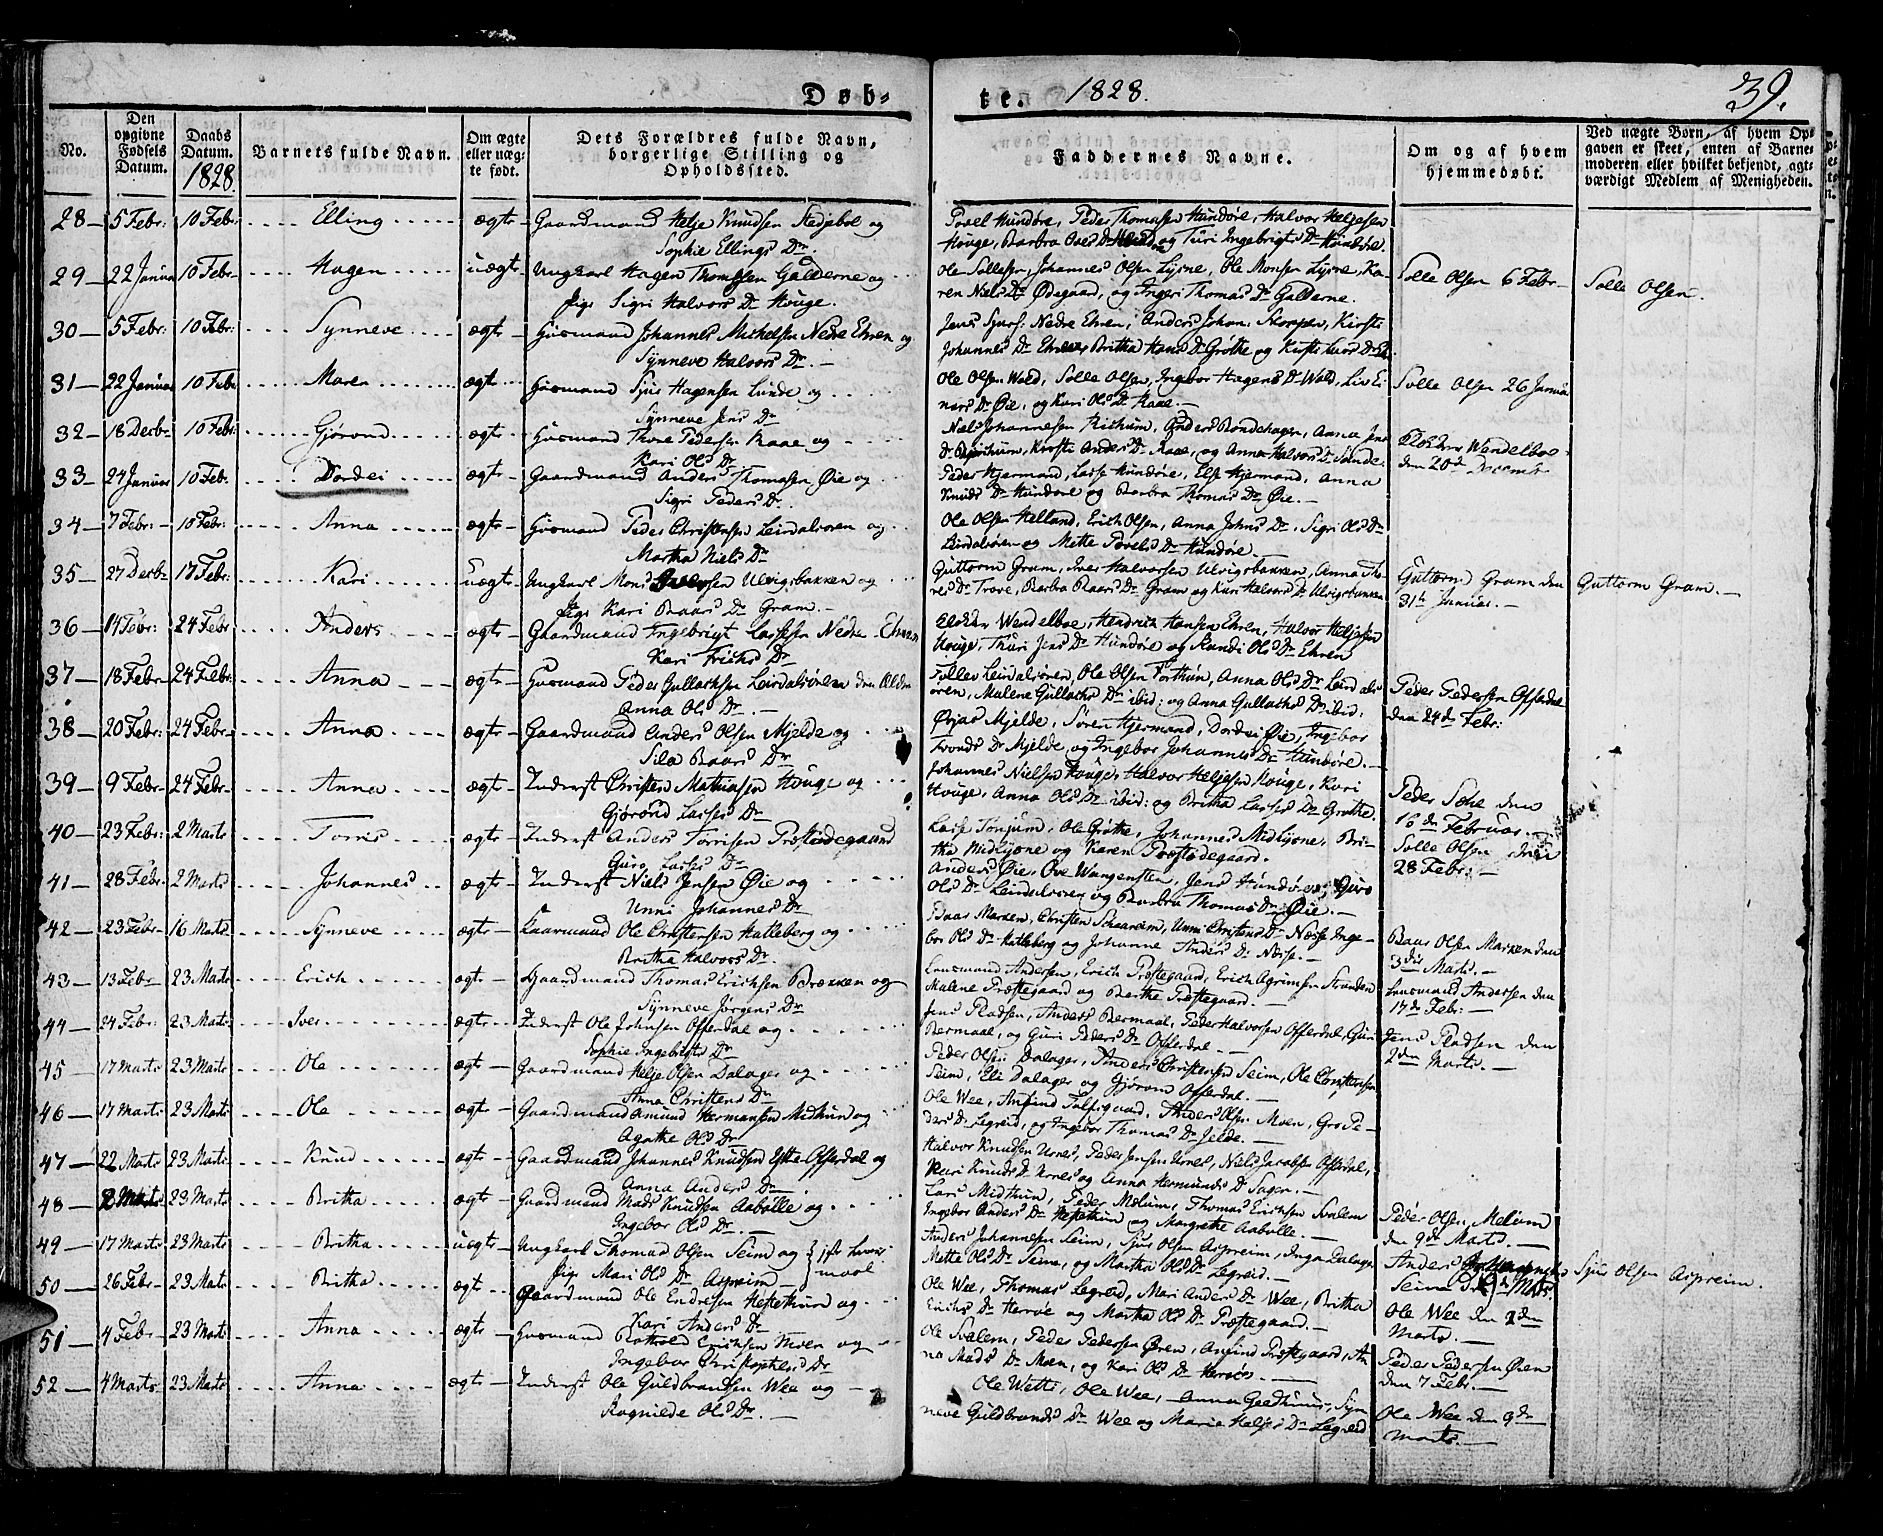 Døb-
te. 1828.
39.
No.
Den opgivne Fødsels Datum.
Daabs Datum. 1828.
Barnets fulde Navn.
Om ægte eller uægte født.
Dets Forældres fulde Navn, borgerlige Stilling og Opholdssted.
Faddernes Navne.
Om og af hvem hjemmedøbt.
Ved uægte Børn, af hvem Opgaven er skeet, enten af Barnemoderen eller hvilket bekjendt, agtværdigt Medlem af Menigheden.
28 – 5 Febr: 10 Febr: Elling ægte – Gaardmand Helje Knudsen Stedjebol og
Sophie Ellings Dr
Povel Hundøre, Peder Thomasen Hundøre, Halvor Heljesen
Houge, Barbra og Turi Ingebrigts Dr Hundøre
29 – 22 Januar 10 Febr Hagen uægte Ungkarl Hagen Thomesen Galderne og
Pige Sigri Halvors Dr Houge.
Ole Sollesen, Johannes Olsen Lysne, Ole Monsen Lysne, Ka-
ren Niels Dr Ødegaard, og Ingeri Thomas Dr Galderne.
Solle Olsen 6 Febr –
Solle Olsen.
30 – 5 Febr: 10 Febr: Synneve ægte Huusmand Johannes Michelsen Nedre Ehren og
Synneve Halvors Dr. –
Jens Sjurs. Nedre Ehren, Anders Johan: Stoppen, Kirsti
Johannes Dr Ehren Britha Hans Dr Grøthe og
31 – 22 Januar 10 Febr Maren ægte Huusmand Sjur Hagensen Lunde og
Synneve Jens Dr
Ole Olsen Wold, Solle Olsen, Ingebor Hagens Dr Wold, Liv Ei-
nars Dr Øie, og Kari Ols Dr Raae. –
Solle Olsen 26 Januar
32 – 18 Decbr 10 Febr: Gjørond ægte – Huusmand Thore Pedersen Raae og
Kari Ols Dr
Niels Johannesen Rithum, Anders Bondehagen, Anna Jens
Dr Rithum, Kirsti Anders Dr Raae, og Anna Halvors Dr Sande.
Klokker Wendelboe
den 20de Decembr
33 – 24 Januar 10 Febr. Dordei ægte – Gaardmand Anders Thomasen Øie og
Sigri Peders Dr
Peder Hjermand, Lasse Hundøre, Else Hjermand, Anna
Knuds Dr Hundøre og Barbra Thomas Dr Øie. –
34 – 7 Febr: – 10 Febr: Anna ægte – Huusmand Peder Christensen Leirdalsøren og
Martha Niels Dr
Ole Olsen Helland, Erich Olsen, Anna Johns Dr, Sigri Ols Dr
Leirdalsøren og Mette Povels Dr Hundøre. –
35 – 27 Decbr 17 Febr: Kari uægte – Ungkarl Mons Ulvigsbakken og
Pige Kari Baars Dr Gram. –
Guttorm Gram, Iver Halvorsen Ulvigsbakken, Anna Tho-
res Dr Trove, Barbra Baars Dr Gram og Kari Halvors Dr Ulvigsbakken
Guttorm Gram den
31te Januar. –
Guttorm Gram. –
36 – 14 Febr: 24 Febr Anders ægte – Gaardmand Ingebrigt Lassesen Nedre – Ehren
Kari Erichs Dr
Klokker Wendelboe, Hendrich Hansen Ehren, Halvor Heljesen
Houge, Thuri Jens Dr Hundøre og Randi Ols Dr Ehren
37 – 18 Febr 24 Febr: Anna ægte – Huusmand Peder Gullachsen Leirdalsøren den Ældre
Anna Ols Dr. –
Follev Leirdalsøren, Ole Olsen Forthun, Anna Ols Dr Leirdals-
øren, Malene Gullachs Dr ibid: og Anna Gullachs Dr ibid:
Peder Pedersen Offerdal
den 24de Febr:
38 – 20 Febr: 24 Febr Anna ægte – Gaardmand Anders Olsen Mjelde og
Sila Baars Dr
Ørjas Mjelde, Søren Hjermand, Dordei Øie, Ingebor
Tronds Dr Mjelde, og Ingebor Johannes Dr Hundøre. –
39 – 9 Febr 24 Febr Anna ægte – Inderst Christen Mathiasen Houge og
Gjørond Lasses Dr
Johannes Nielsen Houge, Halvor Heljesen Houge, Kari
Houge, Anna Ols Dr ibid: og Britha Lasses Dr Grøthe.
Peder Sohe den
16de Februar.
40 – 23 Febr: 2 Marts Torris ægte – Inderst Anders Torrisen Præstødegaard
Guro Lasses Dr
Lasse Tønjum, Ole Grøthe, Johannes Midlyøne, Bri-
tha Midlyøne og Karen Præstødegaard.
Solle Olsen den
28 Febr: –
41 – 28 Febr: 2 Marts Johannes ægte – Inderst Niels Jensen Øie og
Unni Johannes Dr
Anders Øie, Ove Wangensten, Jens Hundøre, Guro
Ols Dr Leirdalsøren og Barbra Thomas Dr Øie. –
42 – 23 Febr 16 Marts Synneve ægte – Kaarmand Ole Christensen Halleberg og
Britha Halvors Dr.
Baar Marken, Christen Schaareim, Unni Christens Dr Næsse Inge-
bor Ols Dr Halleberg og Johanne Anders Dr Næsse. –
Baar Olsen Markendan
3die Marts. –
43 – 13 Febr 23 Marts Erich ægte – Gaardmand Thomas Erichsen Brækken og
Synneve Jørgens Dr
Lensmand Andersen, Erich Præstegaard, Erich Agrimsen Stranden
Malene Præstegaard og Berthe Præstegaard. –
Lensmand Andersen den
17de Feb: –
44 – 24 Febr: 23 Marts Iver ægte – Inderst Ole Johnsen Offerdal og
Sophie Ingebrigts Dr
Jens Pladsen, Anders Bermaal, Peder Halvorsen Offerdal, Guri
Bermaal, og Guri Peders Dr Offerdal. –
Jens Pladsen den
2den Marts. –
45 – 17 Marts 23 Marts Ole ægte – Gaardmand Helje Olsen Dalager og
Anna Christens Dr
Peder Olsen Dalager, Anders Christensen Seim, Ole Christensen
Seim, Eli Dalager og Gjørond Offerdal. –
46 – 17 Marts 23 Marts Ole ægte – Gaardmand Amund Hermansen Midthun og
Agathe Ols Dr
Ole Wee, Anfind Anders Olsen Moen, Gro Pe-
ders Dr Legreid, og Ingebor Thomas Dr Jelde. –
47 – 22 Marts 23 Marts Knud ægte – Gaardmand Johannes Knudsen Eftre Offerdal og
Anna Anders Dr –
Halvor Knudsen Urnes, Peder Jensen Urnes, Niels Jacobsen Offerdal,
Kari Knuds Dr Urnes og Anna Hermunds Dr
48 – 2 Marts 23 Marts Britha ægte – Gaardmand Mads Knudsen Aabølle og
Ingebor Ols Dr. –
Lars Midthun, Peder Melum, Thomas Erichsen Svalem
Ingebor Anders Dr Heftethun og Margrethe Aabølle. –
Peder Olsen Melum
den 9de Marts. –
49 – 17 Marts 23 Marts Britha uægte – Ungkarl Thomas Olsen Seim og
Pige Mari Ols Dr Aspreim – } 1ste Leier-
maal
Anders Johannesen Seim, Sjur Olsen Aspreim, Inga Dalager
Mette Ols Dr Seim, og Martha Ols Dr Legreid. –
Anders
Seim Marts.
Sjur Olsen Aspreim.
50 – 26 Febr – 23 Marts Britha ægte Gaardmand Ole Endresen Heftethun og
Kari Anders Dr
Ole Wee, Thomas Legreid, Mari Anders Dr Wee, Britha
Erichs Dr Herrøe og Martha Ols Dr Præstegaard. –
Ole Wee den 2den
Marts. –
51 – 4 Febr – 23 Marts Anna ægte – Huusmand Botholf Erichsen Moen og
Ingebor Christophers Dr
Ole Svalem, Peder Pedersen Øren, Anfind Præstegaard, An-
na Mads Dr Moen, og Kari Ols Dr –
Peder Pedersen Øien
den 7 Febr. –
52 – 4 Marts 23 Marts Anna ægte – Inderst Ole Guldbrandsen Wee og
Ragnilde Ols Dr. –
Ole Wetti, Ole Wee, Anna Geethuus, Syn-
neve Guldbrands Dr Wee og Marie Heljes Dr Legreid
Ole Wee den 9de
Marts. –